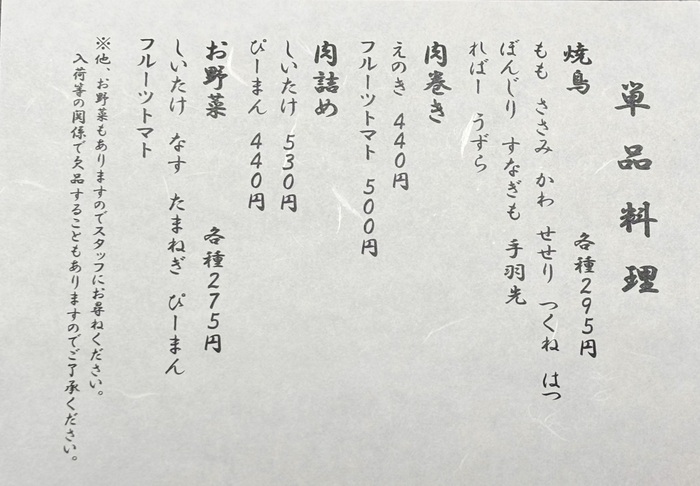 単品料理
焼鳥 各種295円
もも ささみ かわ せせり つくね はつ
ぼんじり すなぎも 手羽先
ればー うずら
肉巻き
えのき 440円
フルーツトマト 500円
肉詰め
しいたけ 530円
ぴーまん 440円
お野菜 各種275円
しいたけ なす たまねぎ ぴーまん
フルーツトマト
※他、お野菜もありますのでスタッフにお尋ねください。
入荷等の関係で欠品することもありますのでご了承ください。